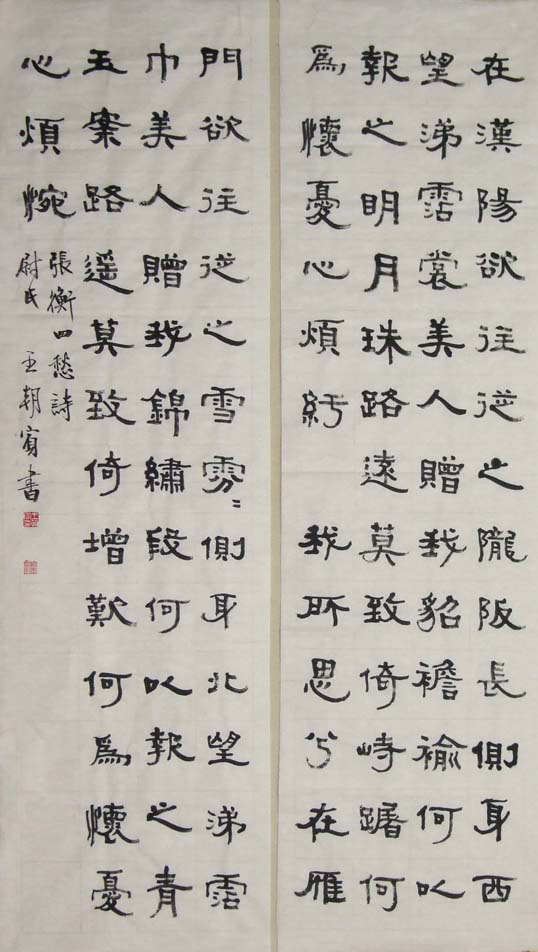 在漢陽欲往從之隴阪長側身西
望涕霑裳美人贈我貂襜褕何以
報之明月珠路遠莫致倚峙躇何
爲懷憂心煩紆 我所思兮在雁
門欲往從之雪雰〻側身北望涕霑
巾美人贈我錦繡段何以報之青
玉案路遥莫致倚增歎何爲懷憂
心煩惋
張衡四愁詩
尉氏 王朝賓書